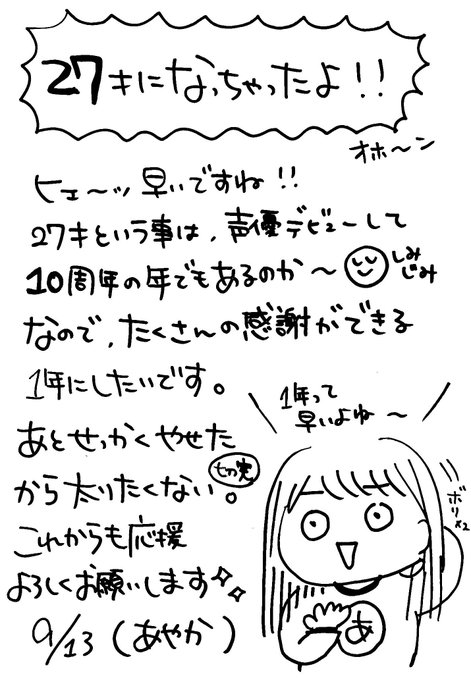 27才になっちゃったよ!!
オホ〜ン
ヒェ〜ッ早いですね!!
27才という事は、声優デビューして
10周年の年でもあるのか〜
しみ
じみ
なので、たくさんの感謝ができる
1年にしたいです。
あとせっかくやせた
から太りたくない。
これからも応援
よろしくお願いします
9/13(あやか)
1年って
早いよね〜
ボリ×2
あ